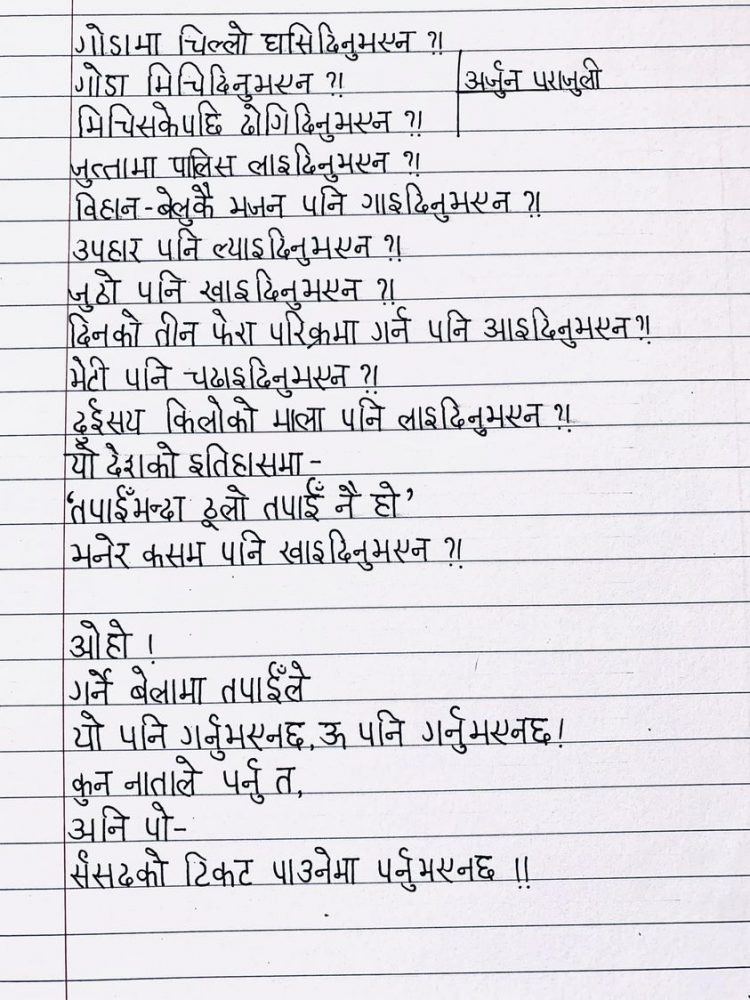 गोडामा चिल्लो घसिदिनुभएन ?!
गोडा मिचिदिनुभएन ?!
अर्जुन पराजुली
मिचिसकेपछि ढोगिदिनुभएन ?!
जुत्तामा पालिस लाइदिनुभएन ?!
विहान-बेलुकै भजन पनि गाइदिनुभएन ?!
उपहार पनि ल्याइदिनुभएन ?!
जुठो पनि खाइदिनुभएन ?!
दिनको तीन फेरा परिक्रमा गर्न पनि आइदिनुभएन?!
भेटी पनि चढाइदिनुभएन ?!
दुईसय किलोको माला पनि लाइदिनुभएन ?!
यो देशको इतिहासमा-
‘तपाईँभन्दा ठूलो तपाईँ नै हो’
भनेर कसम पनि खाइदिनुभएन ?!
ओहो !
गर्ने बेलामा तपाईँले
यो पनि गर्नुभएनछ, ऊ पनि गर्नुभएनछ!
कुन नाताले पर्नु त,
अनि पो-
संसदको टिकट पाउनेमा पर्नुभएनछ !!